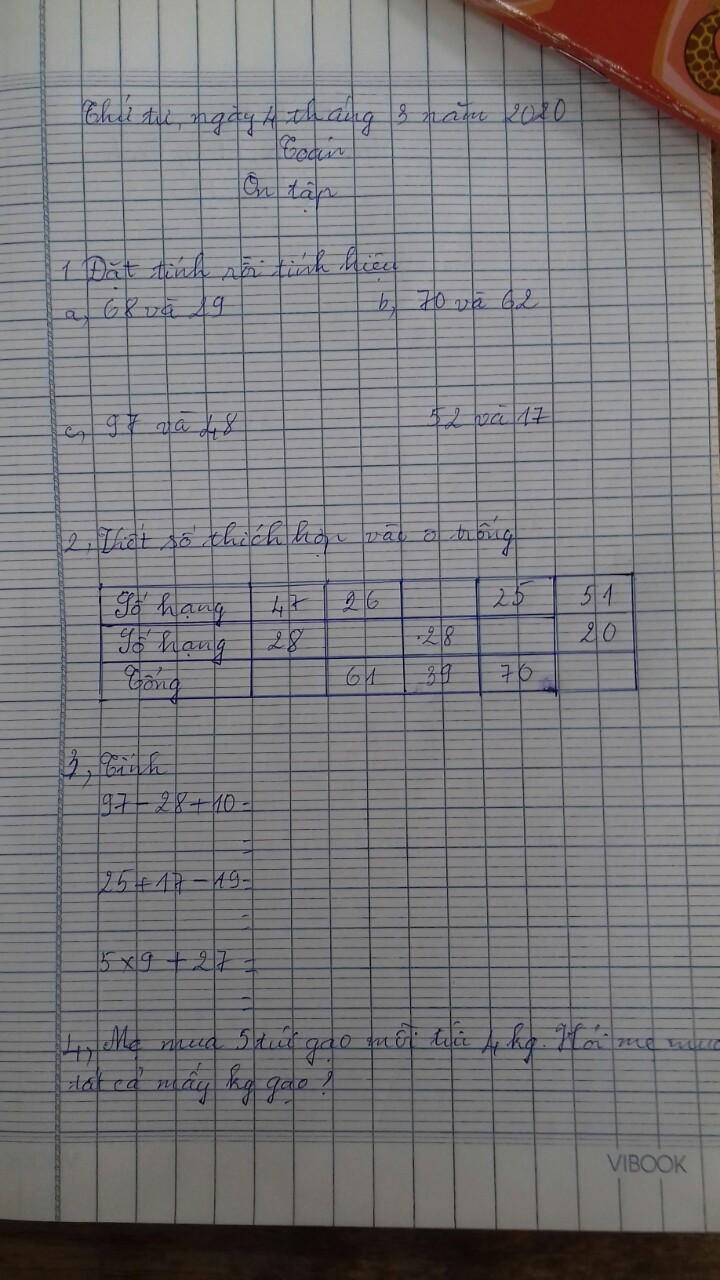 Thứ tư, ngày 4 tháng 3 năm 2020
Toán
Ôn tập
1 Đặt tính rồi tính hiệu
a, 68 và 29 b, 70 và 62
c, 97 và 48 52 và 17
2, Viết số thích hợp vào ô trống
Số hạng 47 26 25 51
Số hạng 28 28 20
Tổng 61 39 70
3, Tính
97 - 28 + 10 =
=
25 + 17 - 19 =
=
5 x 9 + 27 =
=
4, Mẹ mua 5 túi gạo mỗi túi 4 kg. Hỏi mẹ mua
tất cả mấy kg gạo?
VIBOOK